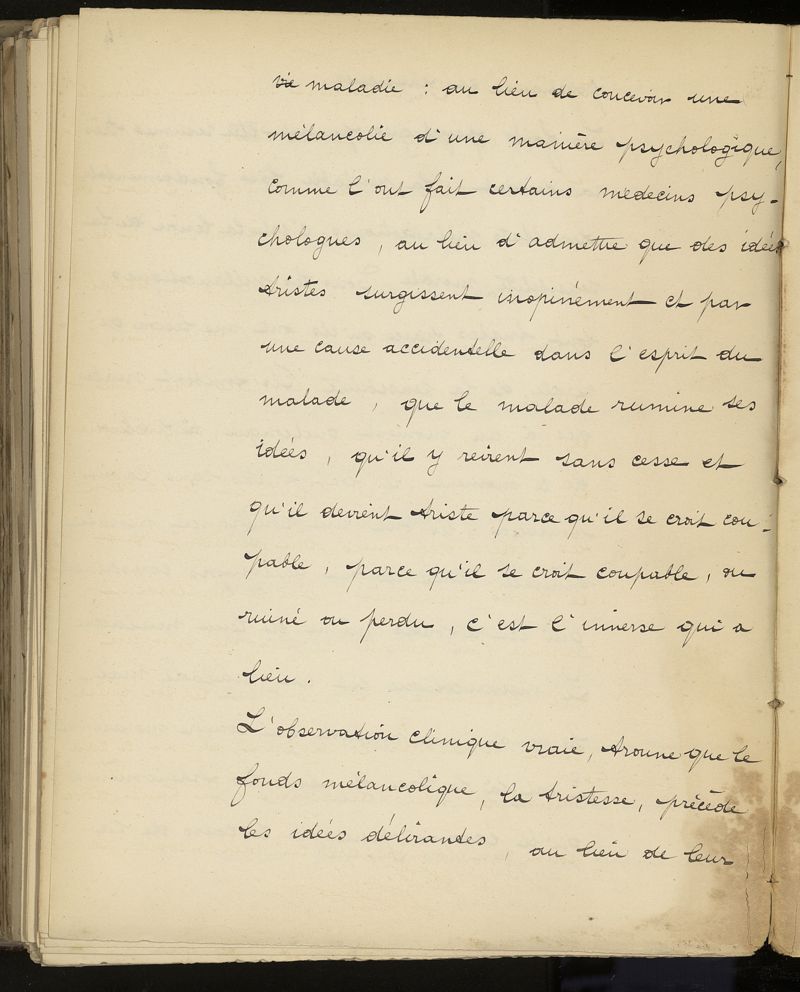 vie maladie : au lieu de concevoir une
mélancolie d'une manière psychologique,
comme l'ont fait certains medecins psy-
chologues, au lieu d'admettre que des idées
tristes surgissent inopinément et par
une cause accidentelle dans l'esprit du
malade, que le malade rumine ses
idées, qu'il y revient sans cesse et
qu'il devient triste parce qu'il se croit cou-
pable, parce qu'il se croit coupable, ou
ruiné ou perdu, c'est l'inverse qui a
lieu.
L'observation clinique vraie, trouve que le
fonds mélancolique, la tristesse, précède
les idées délirantes, au lieu de leur